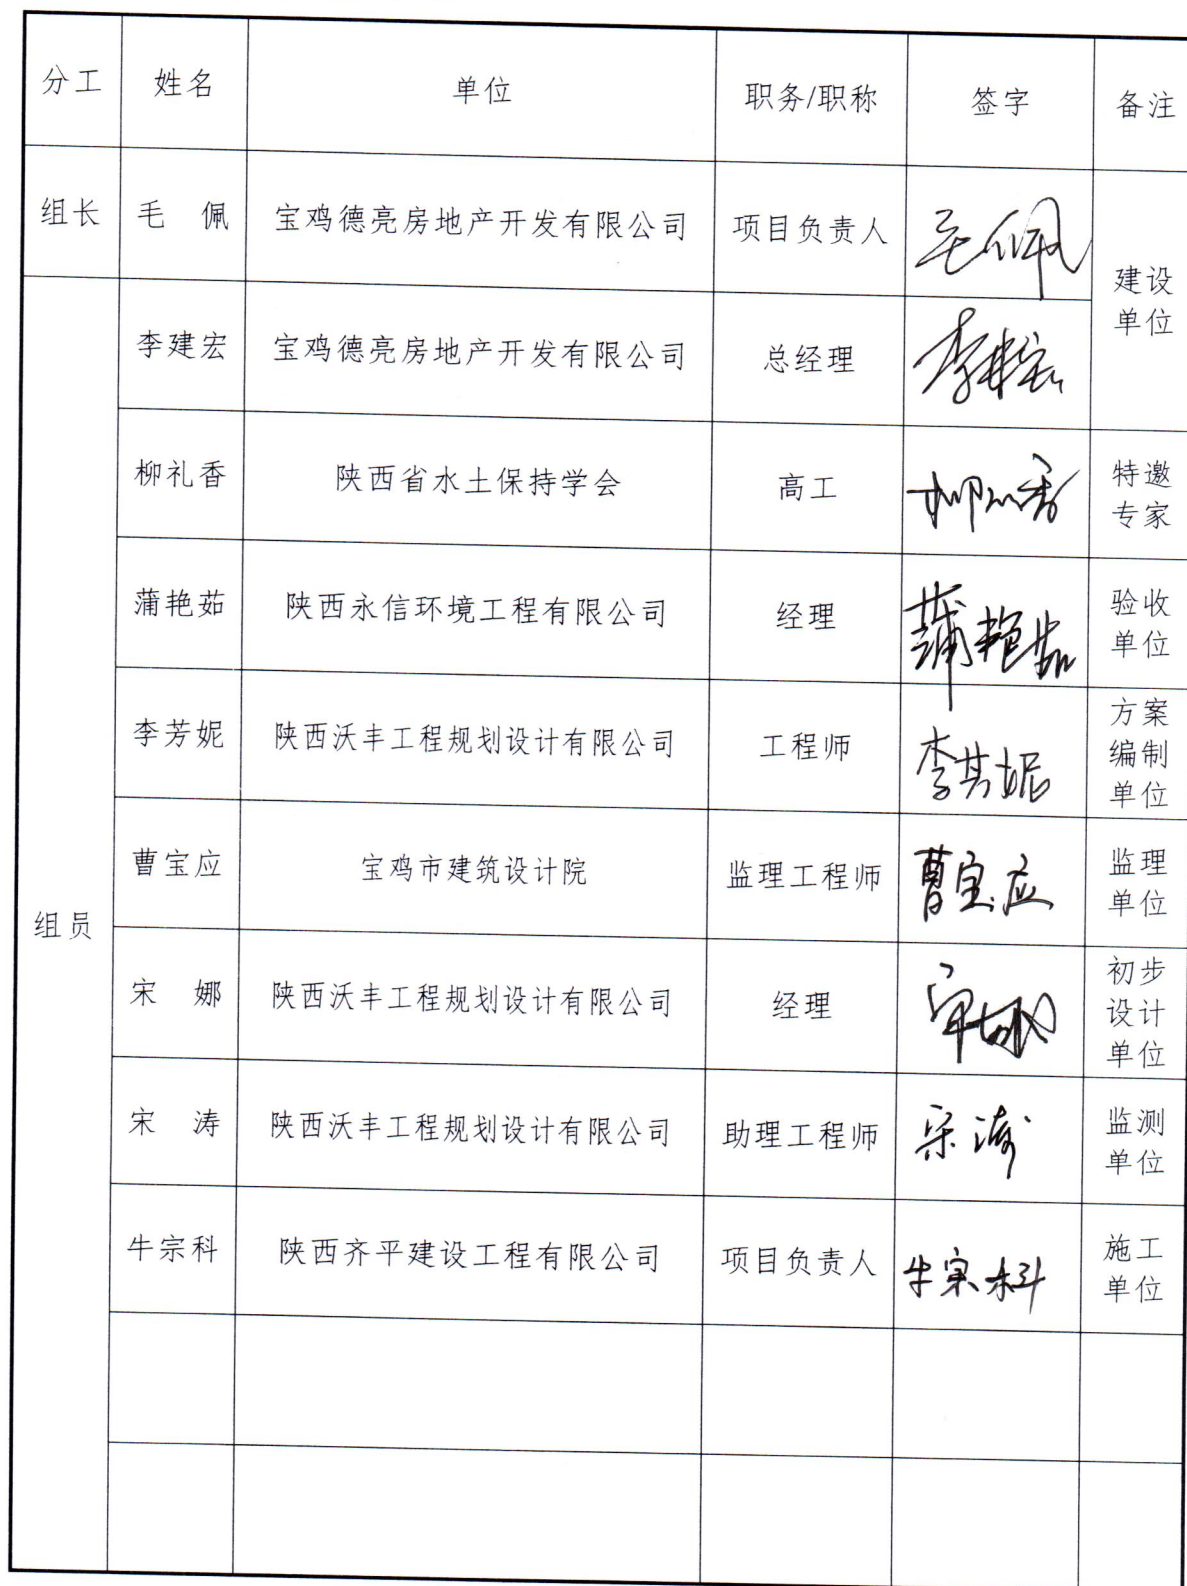 分工 姓名 单位 职务/职称 签字 备注
组长 毛 佩 宝鸡德亮房地产开发有限公司 项目负责人 毛佩 建设单位
组员 李建宏 宝鸡德亮房地产开发有限公司 总经理 李建宏
柳礼香 陕西省水土保持学会 高工 柳礼香 特邀专家
蒲艳茹 陕西永信环境工程有限公司 经理 蒲艳茹 验收单位
李芳妮 陕西沃丰工程规划设计有限公司 工程师 李芳妮 方案编制单位
曹宝应 宝鸡市建筑设计院 监理工程师 曹宝应 监理单位
宋 娜 陕西沃丰工程规划设计有限公司 经理 宋娜 初步设计单位
宋 涛 陕西沃丰工程规划设计有限公司 助理工程师 宋涛 监测单位
牛宗科 陕西齐平建设工程有限公司 项目负责人 牛宗科 施工单位